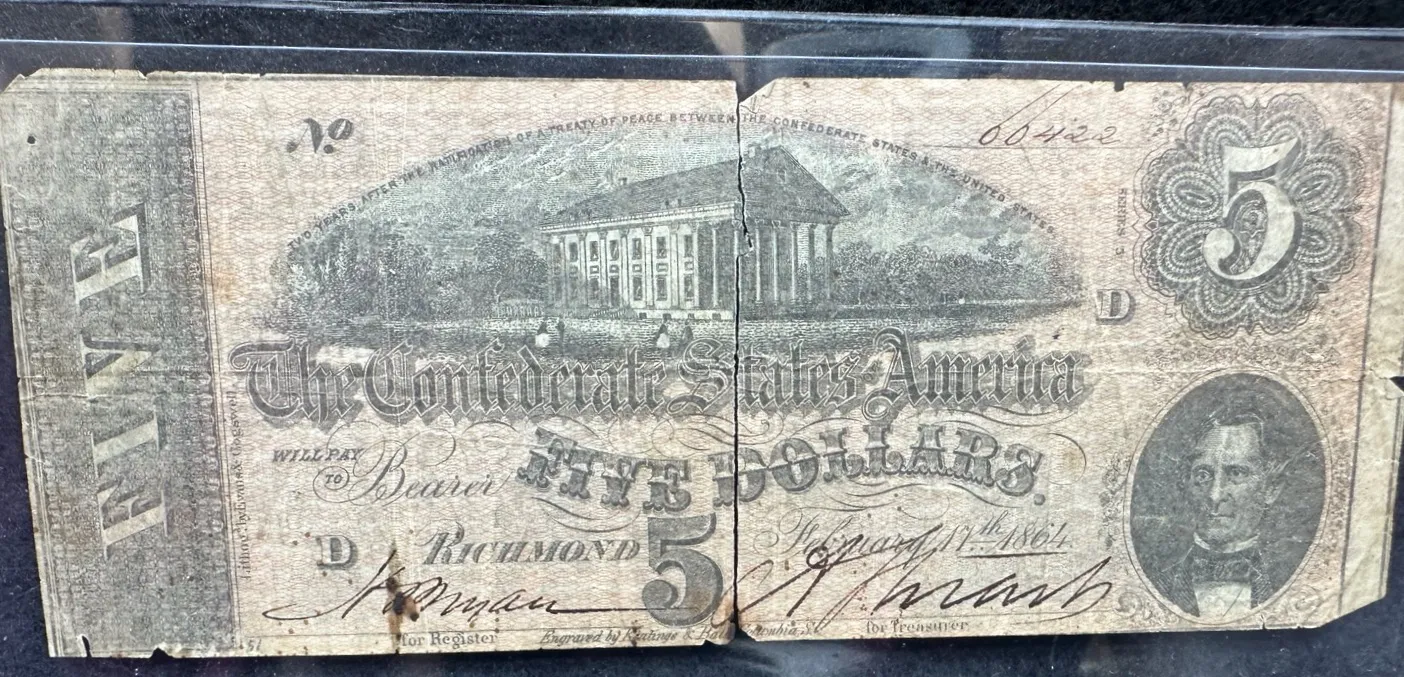 No
60422
TWO YEARS AFTER THE RATIFICATION OF A TREATY OF PEACE BETWEEN THE CONFEDERATE STATES & THE UNITED STATES
5
FIVE
SERIES
D
The Confederate States of America
WILL PAY
TO Bearer
FIVE DOLLARS.
D RICHMOND 5 February 17th 1864
for Register
Engraved by Keatinge & Ball Columbia, S.C.
for Treasurer